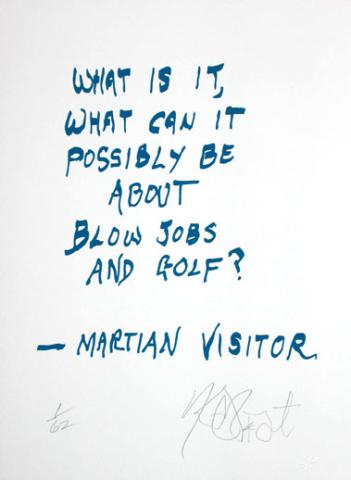 WHAT IS IT,
WHAT CAN IT
POSSIBLY BE
ABOUT
BLOW JOBS
AND GOLF?
— MARTIAN VISITOR
1/62